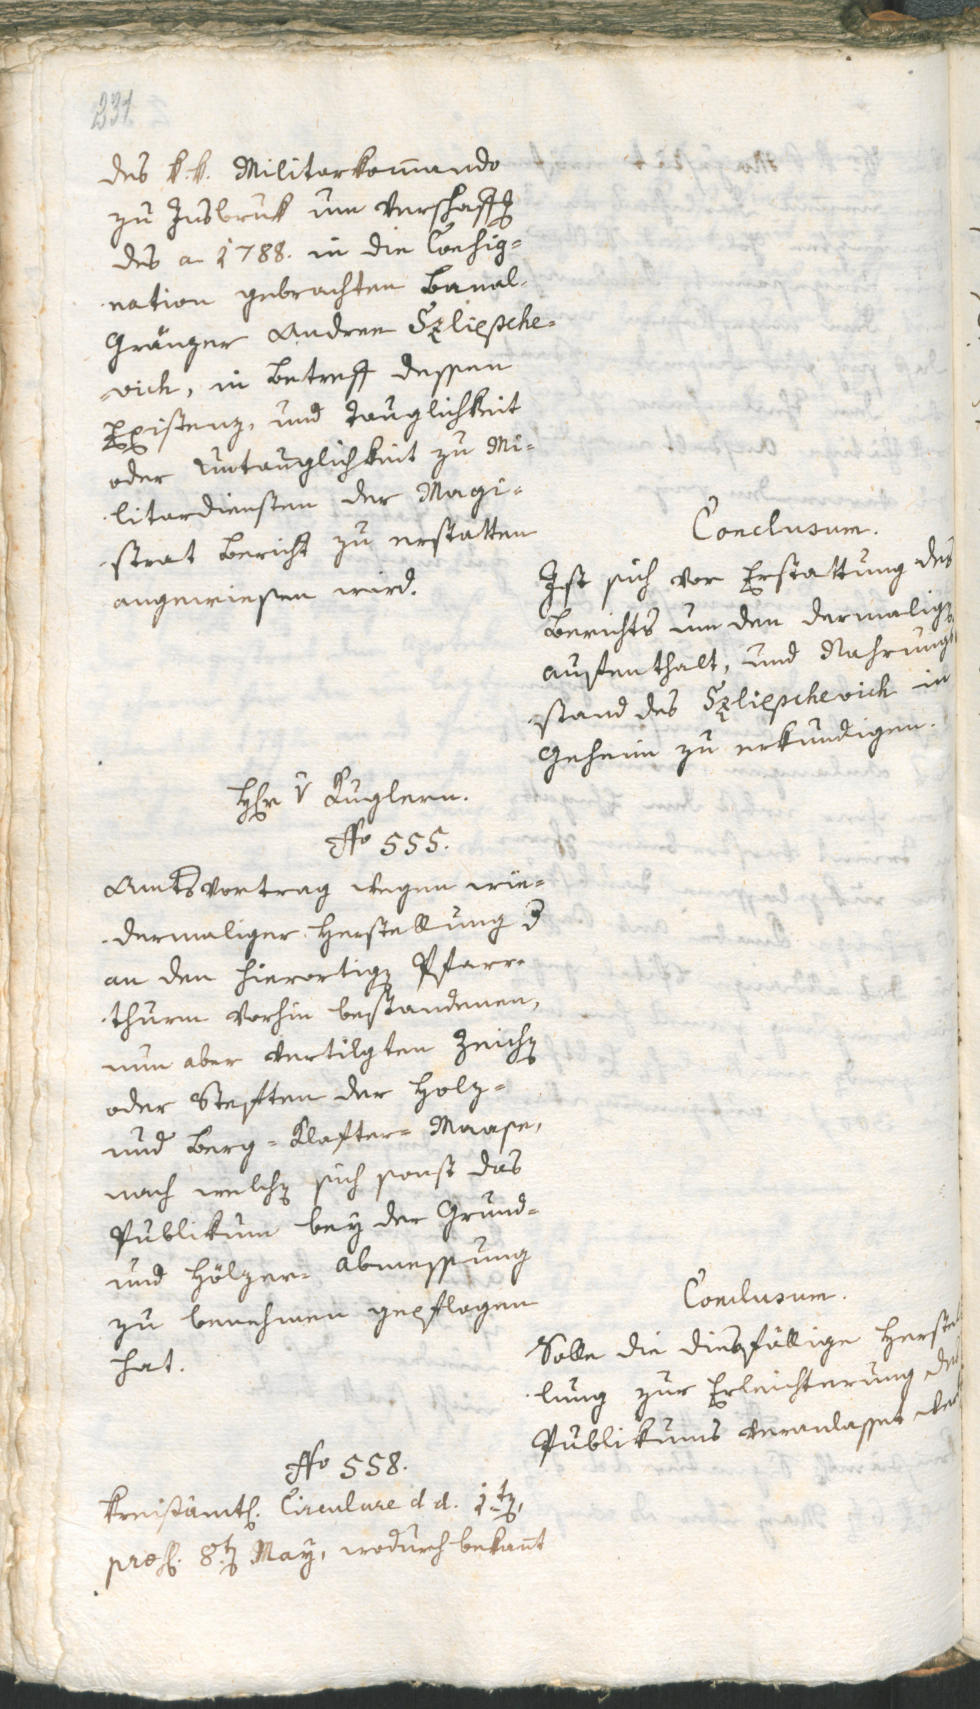 231
des k. k. Militarkom̅ando
zu Insbruk um Verschaffg
des a 1788. in die Consig¬
nation gebrachten Banal-
Gränzer Andree Szliepsche¬
vich, in Betreff dessen
Existenz, und Tauglichkeit
oder Untauglichkeit zu Mi¬
litardiensten der Magi¬
strat Bericht zu erstatten
angewiesen wird.
Conclusum.
Ist sich vor Erstattung des
Berichts um den dermalig
Aufenthalt, und Nahrungs
stand des Szliepschevich in
Geheim zu erkundigen.
H Kuglern.
No 555.
Amtsvortrag wegen wie¬
dermaliger Herstellung d
an den hierortig Pfarr¬
thurm vorhin bestandenen,
nun aber vertilgten Zeich
oder Steften der Holz¬
und Berg-Klafter-Maase,
nach welch sich sonst das
Publikum bey der Grund¬
und Hölzer-Abmessung
zu benehmen gepflogen
hat.
Conclusum.
Solle die diesfällige Herstel
lung zur Erleichterung des
Publikums veranlasset wer
No 558.
Kreisämtl. Circulare d d. 1t,
præs. 8t May, wodurch bekan̅t